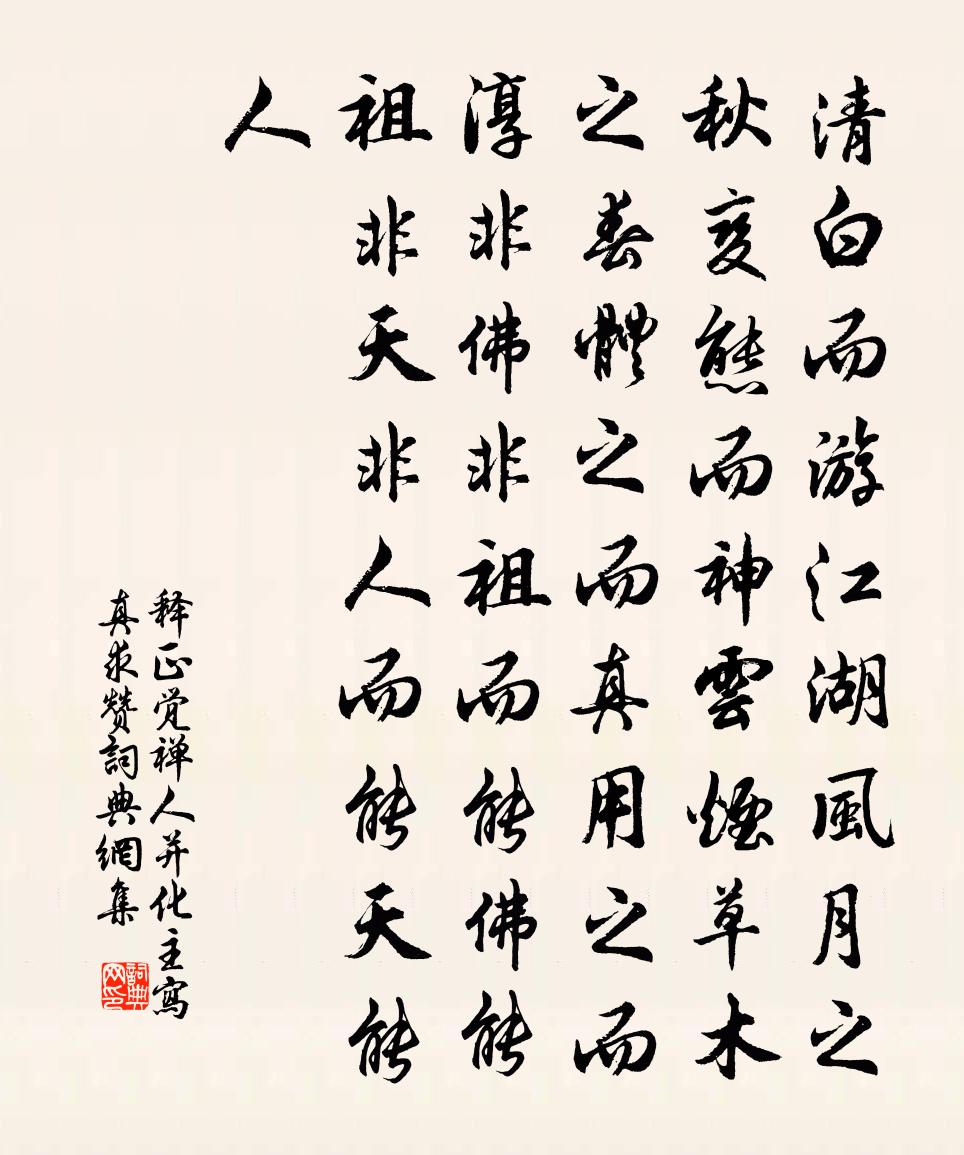 清白而游江湖風月之
秋變態而神雲煙草木
之春體之而真用之而
淳非佛非祖而能佛能
祖非天非人而能天能
人
释正觉禅人并化主寫
真求赞詞典網集
詞典网印